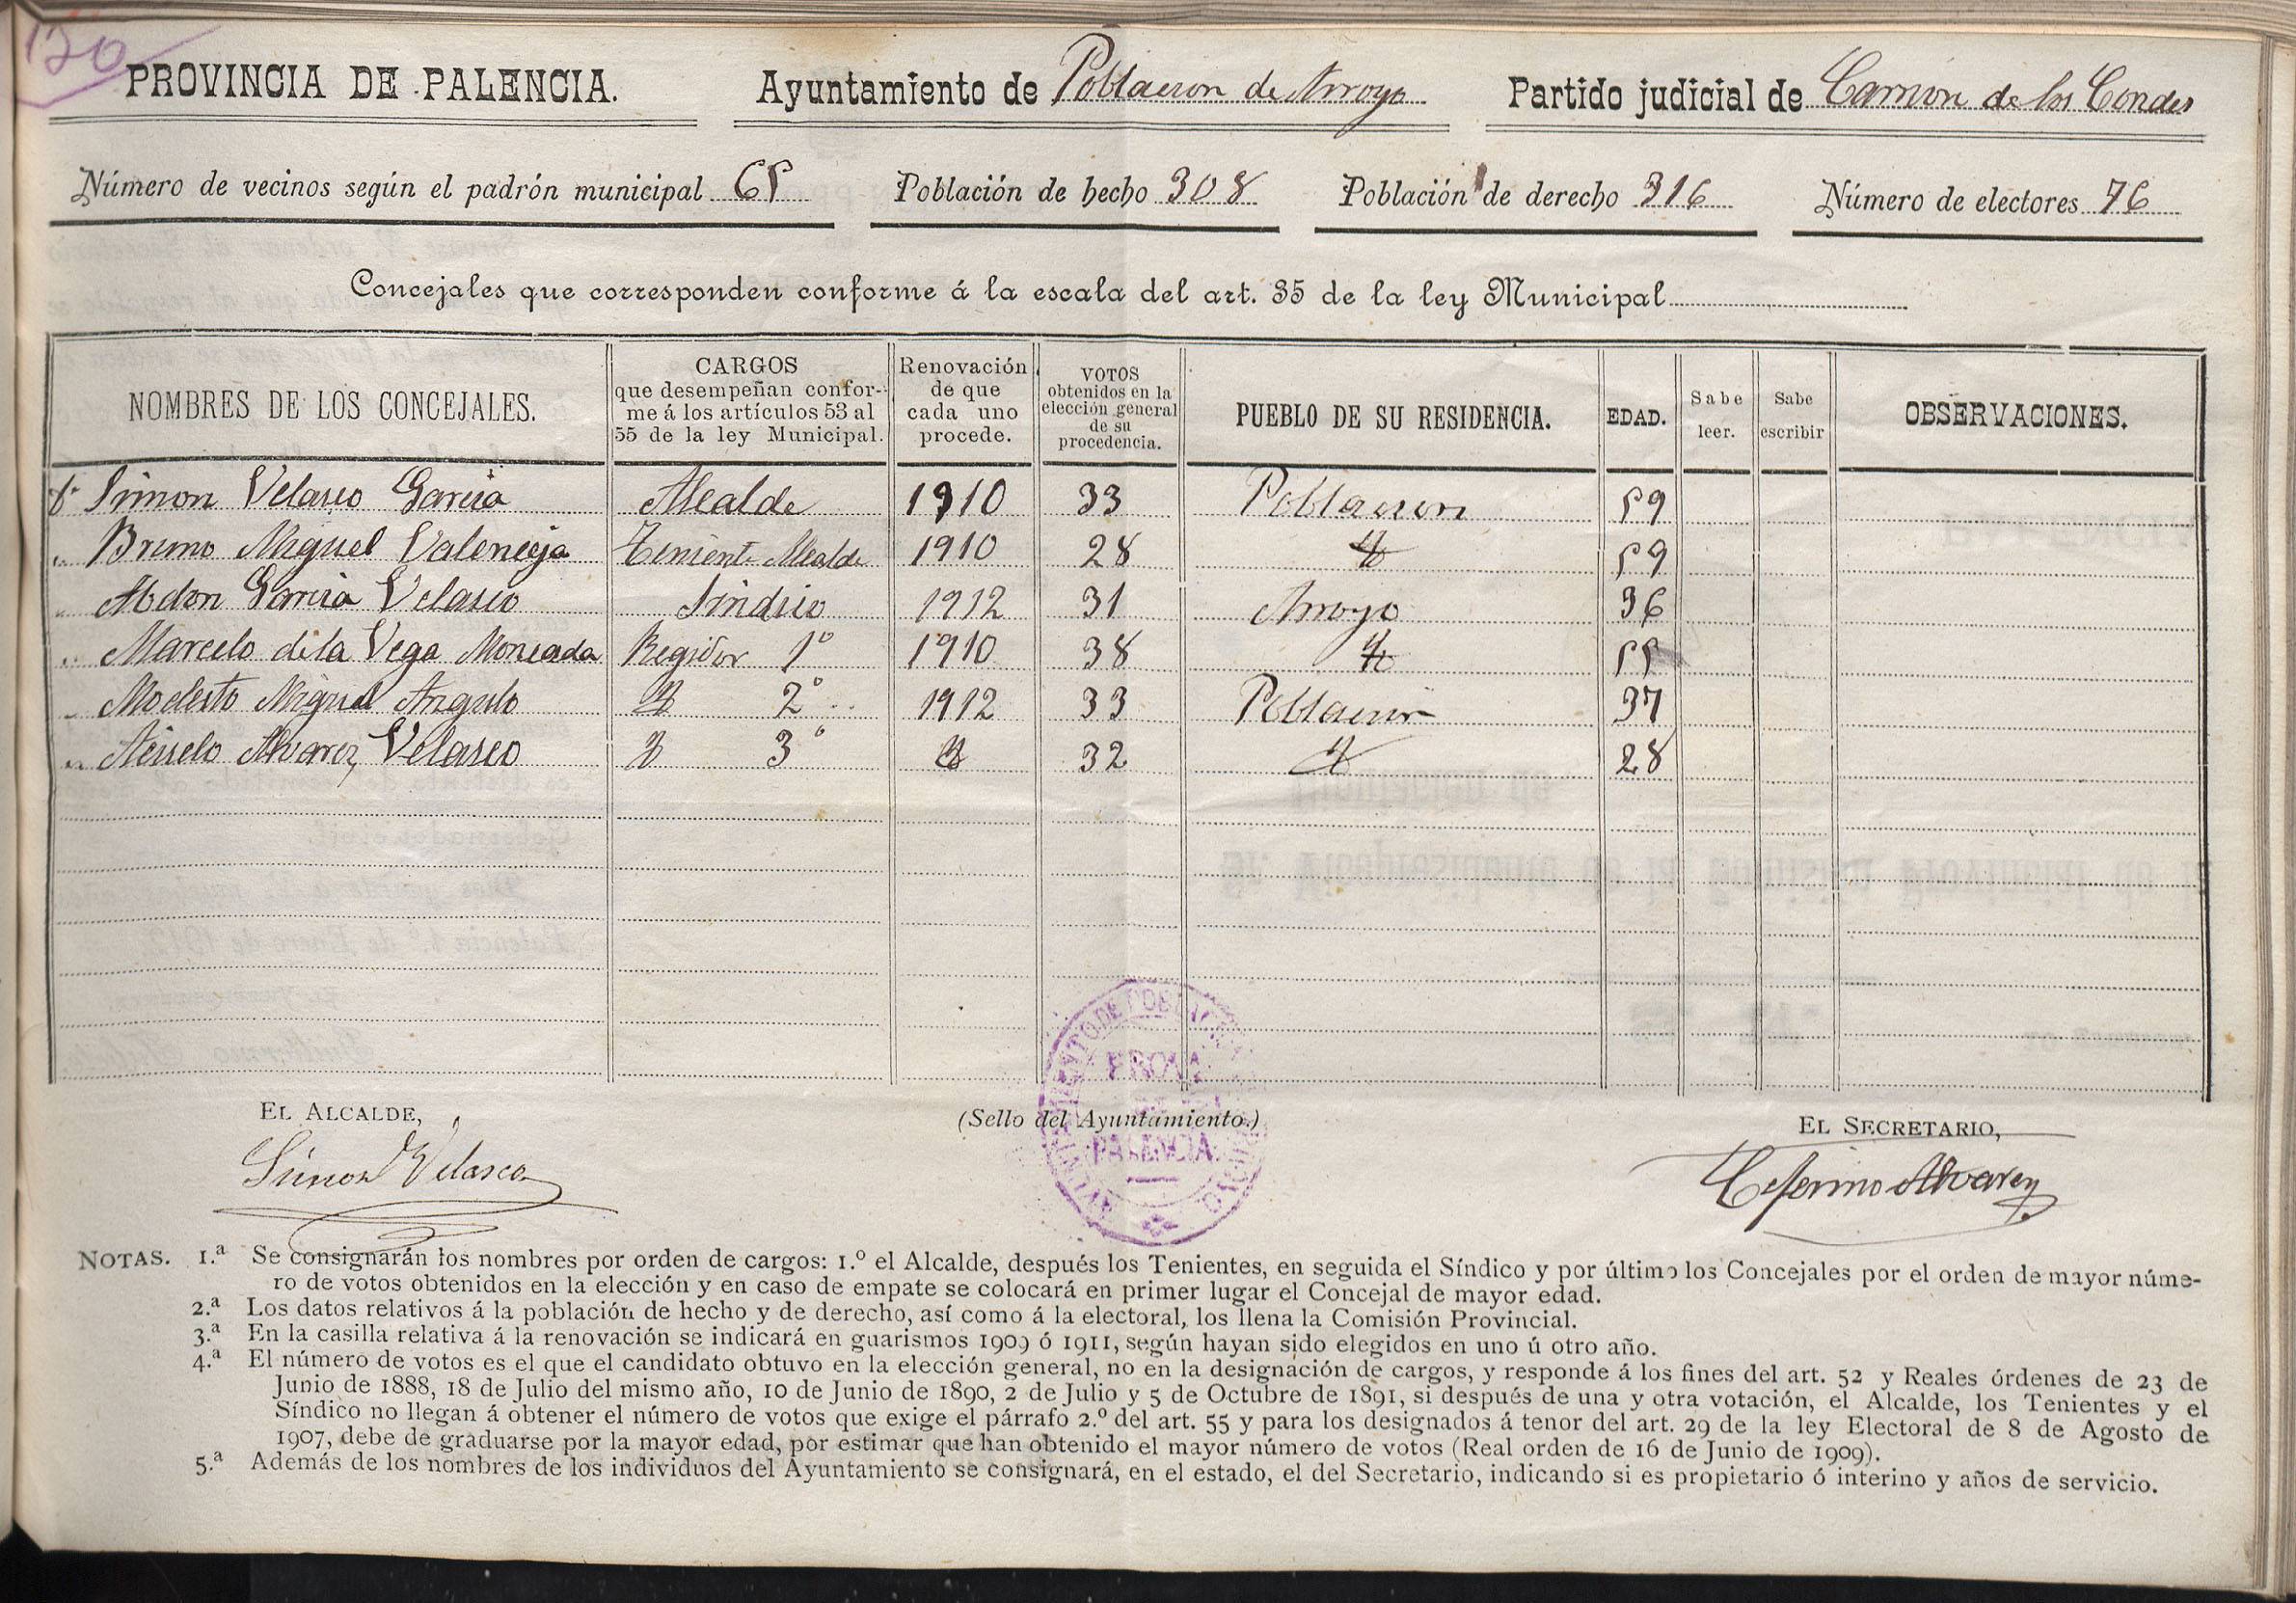 130
PROVINCIA DE PALENCIA. Ayuntamiento de Poblacion de Arroyo Partido judicial de Carrion de los Condes
Número de vecinos según el padrón municipal 65 Población de hecho 308 Población de derecho 316 Número de electores 76
Concejales que corresponden conforme á la escala del art. 35 de la ley Municipal
NOMBRES DE LOS CONCEJALES. CARGOS que desempeñan conforme á los artículos 53 al 55 de la ley Municipal. Renovación de que cada uno procede. VOTOS obtenidos en la elección general de su procedencia. PUEBLO DE SU RESIDENCIA. EDAD. Sabe leer. Sabe escribir OBSERVACIONES.
Dn Simon Velasco Garcia Alcalde 1910 33 Poblacion 59
" Bruno Miguel Valenceja Teniente Alcalde 1910 28 " 59
" Abdon Garcia Velasco Sindico 1912 31 Arroyo 36
" Marcelo de la Vega Moncada Regidor 1º 1910 38 " 55
" Modesto Miguel Angulo " 2º 1912 33 Poblacion 37
" Aciselo Alvarez Velasco " 3º " 32 " 28
EL ALCALDE, (Sello del Ayuntamiento.) EL SECRETARIO,
Simon Velasco PROVA PALENCIA Ceferino Alvarez
NOTAS. 1.ª Se consignarán los nombres por orden de cargos: 1.º el Alcalde, después los Tenientes, en seguida el Síndico y por último los Concejales por el orden de mayor núme-
ro de votos obtenidos en la elección y en caso de empate se colocará en primer lugar el Concejal de mayor edad.
2.ª Los datos relativos á la población de hecho y de derecho, así como á la electoral, los llena la Comisión Provincial.
3.ª En la casilla relativa á la renovación se indicará en guarismos 1909 ó 1911, según hayan sido elegidos en uno ú otro año.
4.ª El número de votos es el que el candidato obtuvo en la elección general, no en la designación de cargos, y responde á los fines del art. 52 y Reales órdenes de 23 de
Junio de 1888, 18 de Julio del mismo año, 10 de Junio de 1890, 2 de Julio y 5 de Octubre de 1891, si después de una y otra votación, el Alcalde, los Tenientes y el
Síndico no llegan á obtener el número de votos que exige el párrafo 2.º del art. 55 y para los designados á tenor del art. 29 de la ley Electoral de 8 de Agosto de
1907, debe de graduarse por la mayor edad, por estimar que han obtenido el mayor número de votos (Real orden de 16 de Junio de 1909).
5.ª Además de los nombres de los individuos del Ayuntamiento se consignará, en el estado, el del Secretario, indicando si es propietario ó interino y años de servicio.